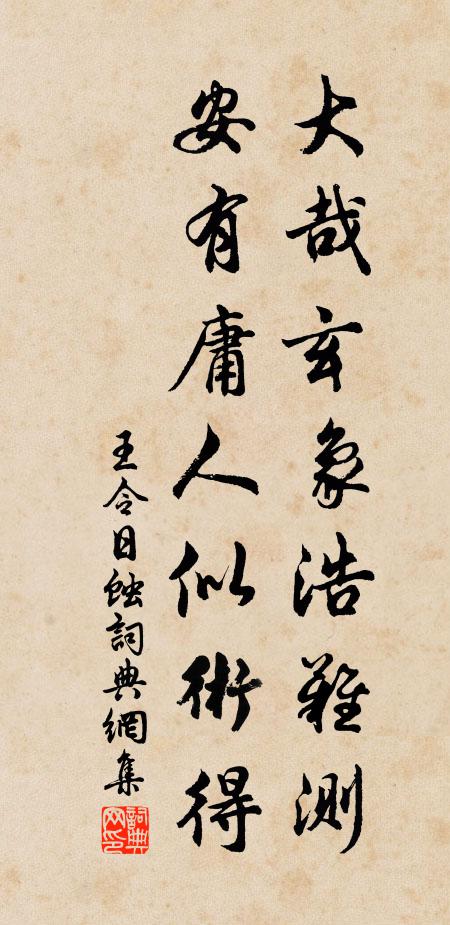 大哉玄象浩難測
安有庸人似術得
王令日蝕詞典網集
詞典网印